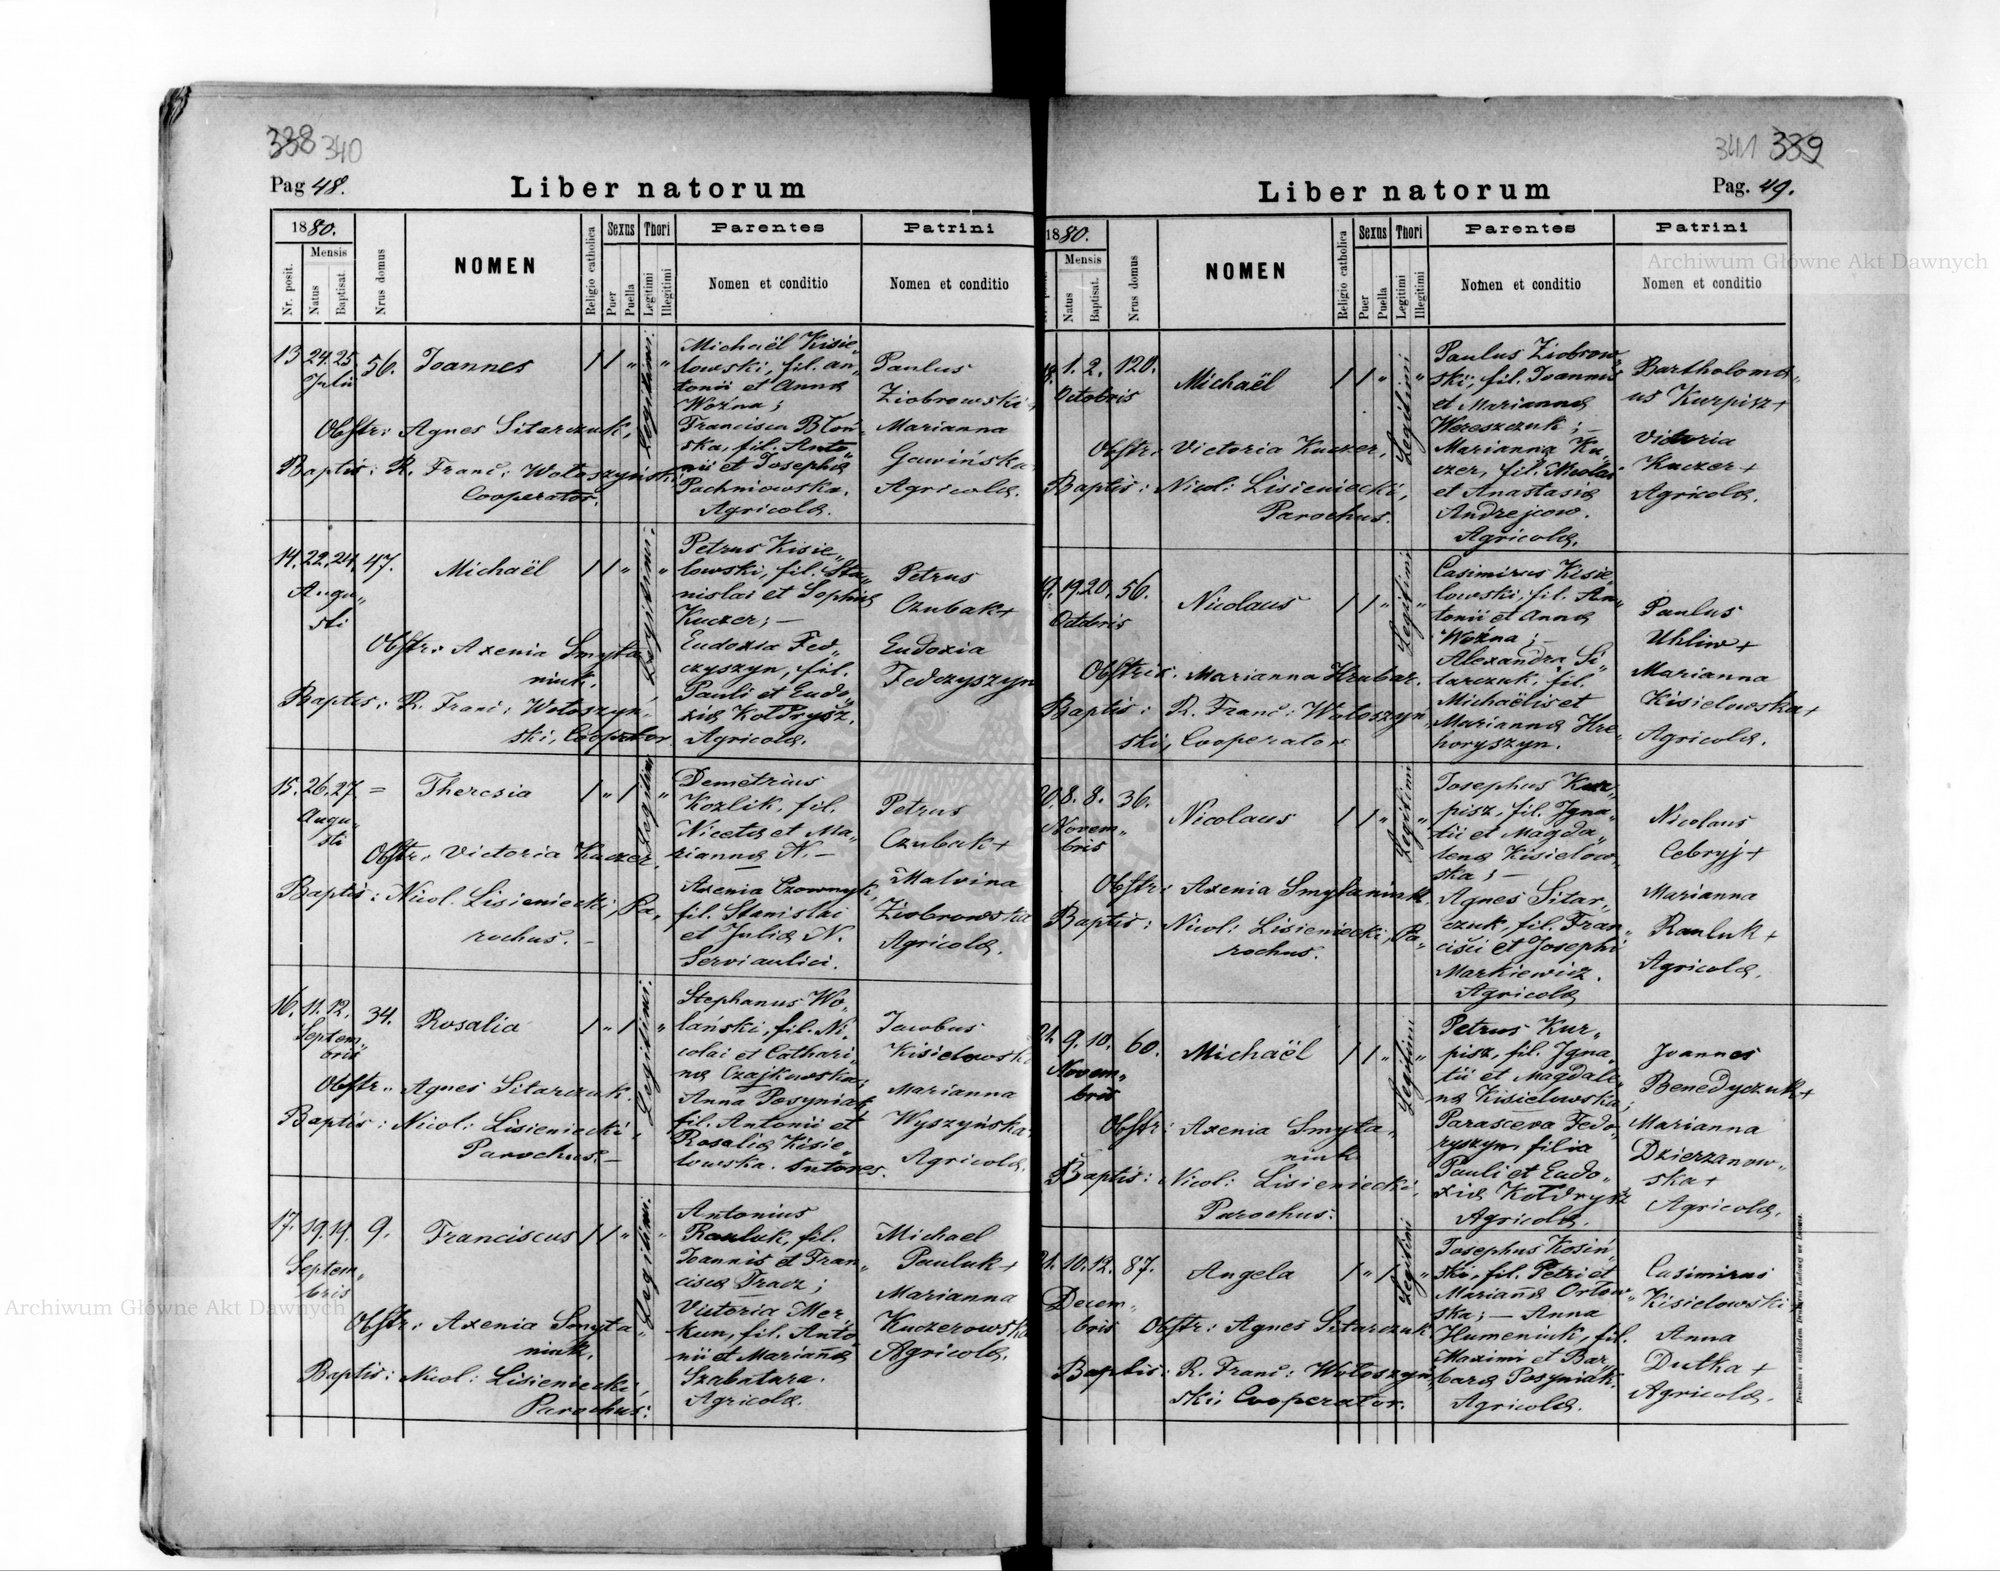 338 340
Pag 48.
Liber natorum
1880.
Nr. posit.
Mensis
Natus
Baptisat.
Nrus domus
NOMEN
Religio catholica
Sexus
Puer
Puella
Thori
Legitimi
Illegitimi
Parentes
Nomen et conditio
Patrini
Nomen et conditio
13 24. 25. 56. Joannes
Julii
Obstr: Agnes Sitarczuk,
Baptis: R. Franc: Wołoszyński
Cooperator.
Legitimi.
Michaël Kisie„
lowski, fil. An„
tonii et Anna
Woźna;
Francisca Błoń„
ska, fil. Anto„
nii et Josepha
Pachniowska.
Agricolæ.
Paulus
Ziobrowski +
Marianna
Gawińska
Agricolæ.
14. 22. 24. 47. Michaël
Augu„
sti
Obstr: Axenia Smyta
niuk.
Baptis: R. Franc: Wołoszyń„
ski, Cooperator
Legitimi.
Petrus Kisie„
lowski, fil. Sta„
nislai et Sophia
Kuczer; —
Eudoxia Fed„
czyszyn, fil.
Pauli et Eudo„
xia Kołdrysz.
Agricolæ.
Petrus
Czubak +
Eudoxia
Fedczyszyn
15. 26. 27. = Theresia
Augu„
sti
Obstr: Victoria Kuczer,
Baptis: Nicol. Lisieniecki, Pa„
rochus. —
Legitimi
Demetrius
Kozlik, fil.
Nicetæ et Ma„
rianna N. —
Axenia Czownyk,
fil. Stanislai
et Julia N.
Servi aulici.
Petrus
Czubak +
Malvina
Ziobrowska
Agricolæ.
16. 11. 12. 34. Rosalia
Septem„
bris
Obstr: Agnes Sitarczuk.
Baptis: Nicol: Lisieniecki,
Parochus. —
Legitimi.
Stephanus Wo„
lański, fil. Ni„
colai et Cathari„
na Czajkowska;
Anna Posyniak
fil. Antonii et
Rosalia Kisie„
lowska. Sutores.
Jacobus
Kisielowski
Marianna
Wyszyńska
Agricolæ.
17. 19. 19. 9. Franciscus
Septem„
bris
Obstr: Axenia Smyta„
niuk.
Baptis: Nicol: Lisieniecki,
Parochus.
Legitimi.
Antonius
Pauluk, fil.
Joannis et Fran„
cisca Tracz;
Victoria Mer„
kun, fil. Anto„
nii et Marianna
Szabatura.
Agricolæ.
Michael
Pauluk +
Marianna
Kuczerowska
Agricolæ.
341 339
Liber natorum
Pag. 49.
1880.
Mensis
Natus
Baptisat.
Nrus domus
NOMEN
Religio catholica
Sexus
Puer
Puella
Thori
Legitimi
Illegitimi
Parentes
Nomen et conditio
Patrini
Nomen et conditio
1. 2. 120. Michaël
Octobris
Obstr: Victoria Kuczer,
Baptis: Nicol: Lisieniecki,
Parochus.
Legitimi
Paulus Ziobrow„
ski, fil. Joannis
et Marianna
Hereszczuk; —
Marianna Ku„
czer, fil. Nicolai
et Anastasia
Andrejcow.
Agricolæ.
Bartholomæ„
us Kurpisz +
Victoria
Kuczer +
Agricolæ.
19. 20. 56. Nicolaus
Octobris
Obstric. Marianna Hrubar.
Baptis: R. Franc: Wołoszyń„
ski, Cooperator
Legitimi
Casimirus Kisie„
lowski, fil. An„
tonii et Anna
Woźna; —
Alexandra Si„
tarczuk, fil.
Michaëlis et
Marianna Hre„
horyszyn.
Paulus
Uhliw +
Marianna
Kisielowska +
Agricolæ.
20. 8. 8. 36. Nicolaus
Novem„
bris
Obstr: Axenia Smytaniuk.
Baptis: Nicol: Lisieniecki, Pa„
rochus.
Legitimi
Josephus Kur„
pisz, fil. Igna„
tii et Magda„
lena Kisielow„
ska; —
Agnes Sitar„
czuk, fil. Fran„
cisci et Josephi
Markiewicz.
Agricolæ
Nicolaus
Cebryj +
Marianna
Pauluk +
Agricolæ.
9. 10. 60. Michaël
Novem„
bris
Obstr: Axenia Smyta„
niuk
Baptis: Nicol: Lisieniecki,
Parochus.
Legitimi
Petrus Kur„
pisz, fil. Igna„
tii et Magdale„
na Kisielowska;
Parasceva Fedo„
ryszyn, filia
Pauli et Eudo„
xia Kołdrysz
Agricolæ.
Joannes
Benedyczuk +
Marianna
Dzierzanow„
ska +
Agricolæ.
10. 12. 87. Angela
Decem„
bris
Obstr: Agnes Sitarczuk
Baptis: R. Franc: Wołoszyń„
ski, Cooperator.
Legitimi
Josephus Kosiń„
ski, fil. Petri et
Marianna Orłow„
ska; — Anna
Humeniuk, fil.
Maximi et Bar„
bara Posyniak.
Agricolæ.
Casimirus
Kisielowski
Anna
Dutka +
Agricolæ.
Archiwum Główne Akt Dawnych
Archiwum Główne Akt Dawnych